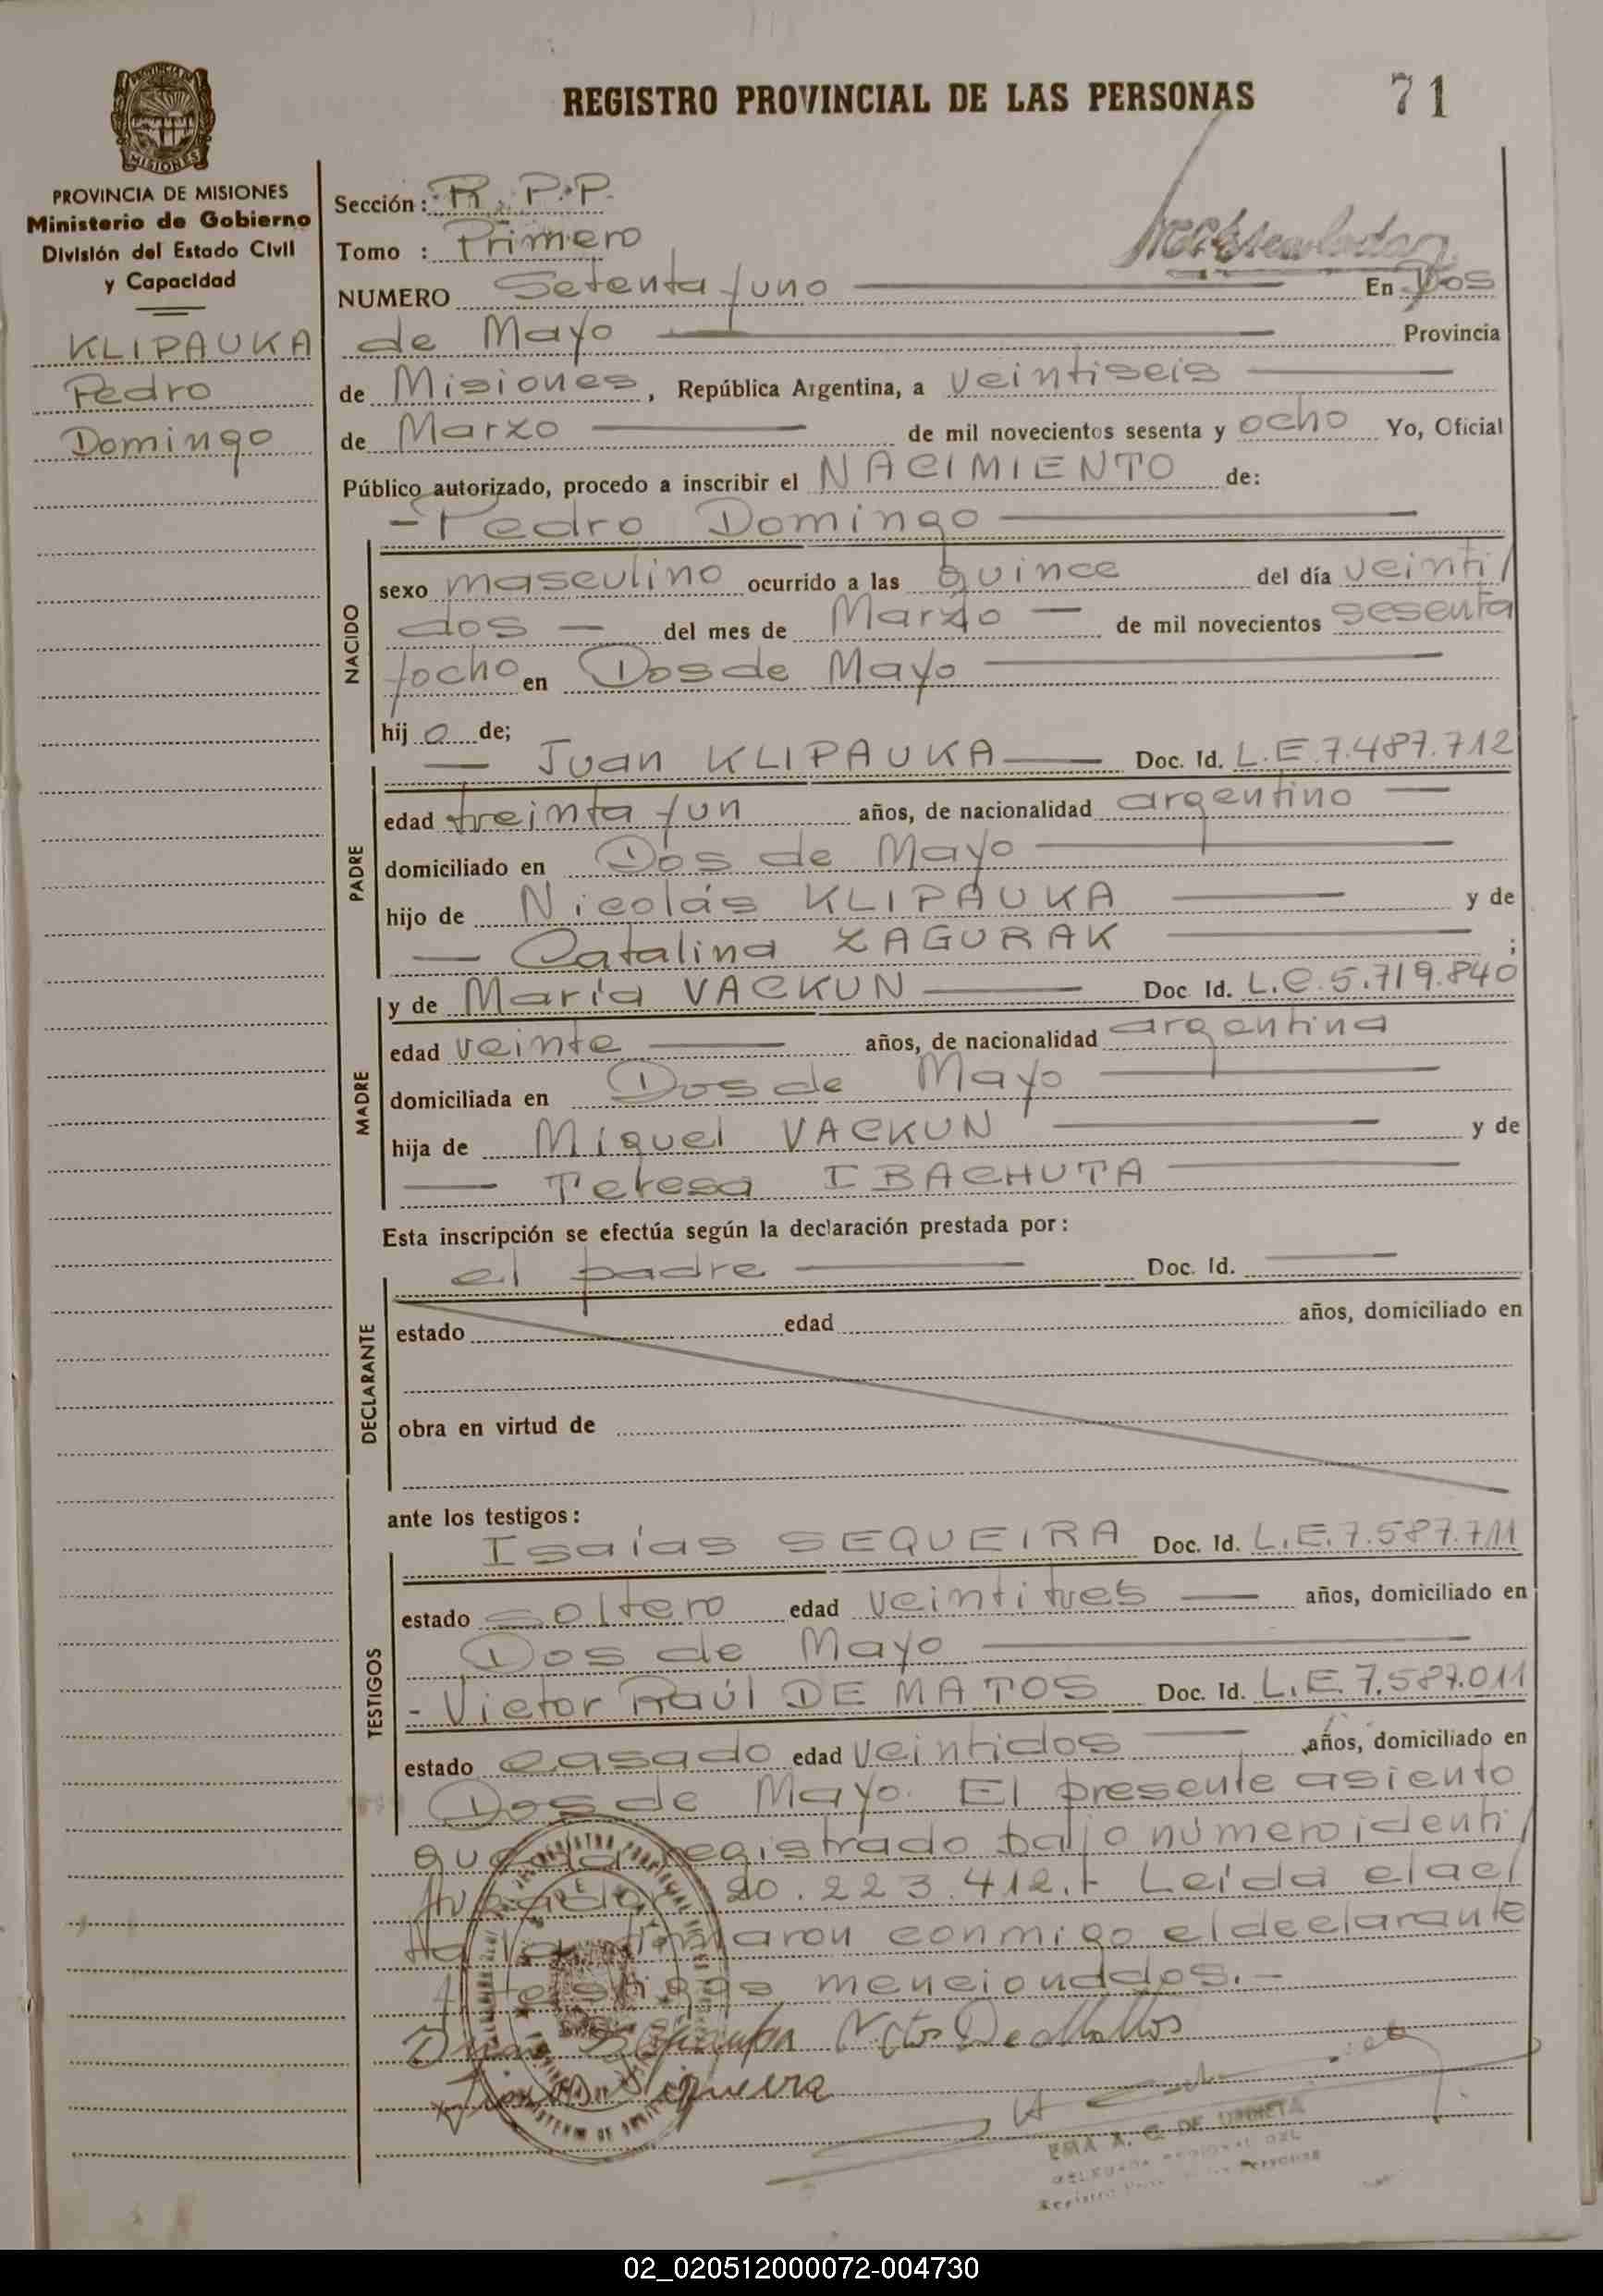 REGISTRO PROVINCIAL DE LAS PERSONAS 71
MISIONES
PROVINCIA DE MISIONES
Ministerio de Gobierno
División del Estado Civil
y Capacidad
KLIPAUKA
Pedro
Domingo
Sección: R.P.P.
Tomo : Primero
NUMERO Setenta y uno En Dos
de Mayo Provincia
de Misiones, República Argentina, a veintiseis
de Marzo de mil novecientos sesenta y ocho Yo, Oficial
Público autorizado, procedo a inscribir el NACIMIENTO de:
- Pedro Domingo
NACIDO
sexo masculino ocurrido a las quince del día veinti/
dos - del mes de Marzo - de mil novecientos sesenta
y ocho en Dos de Mayo
hij o de;
Juan KLIPAUKA Doc. Id. L.E.7.487.712
PADRE
edad treinta y un años, de nacionalidad argentino
domiciliado en Dos de Mayo
hijo de Nicolás KLIPAUKA y de
Catalina ZAGURAK ;
MADRE
y de María VACKUN Doc Id. L.C.5.719.840
edad veinte años, de nacionalidad argentina
domiciliada en Dos de Mayo
hija de Miguel VACKUN y de
Teresa IBACHUTA
Esta inscripción se efectúa según la declaración prestada por:
el padre Doc. Id.
DECLARANTE
estado edad años, domiciliado en
obra en virtud de
ante los testigos:
Isaías SEQUEIRA Doc. Id. L.E.7.587.711
TESTIGOS
estado soltero edad veintitres años, domiciliado en
Dos de Mayo
- Victor Raúl DE MATOS Doc. Id. L.E.7.587.011
estado casado edad veintidos años, domiciliado en
Dos de Mayo. El presente asiento
queda registrado bajo número identi/
20.223.412.- Leída el ac/
ta la firmaron conmigo el declarante
y testigos mencionados.-
EMA A. C. DE URRIETA
02_020512000072-004730